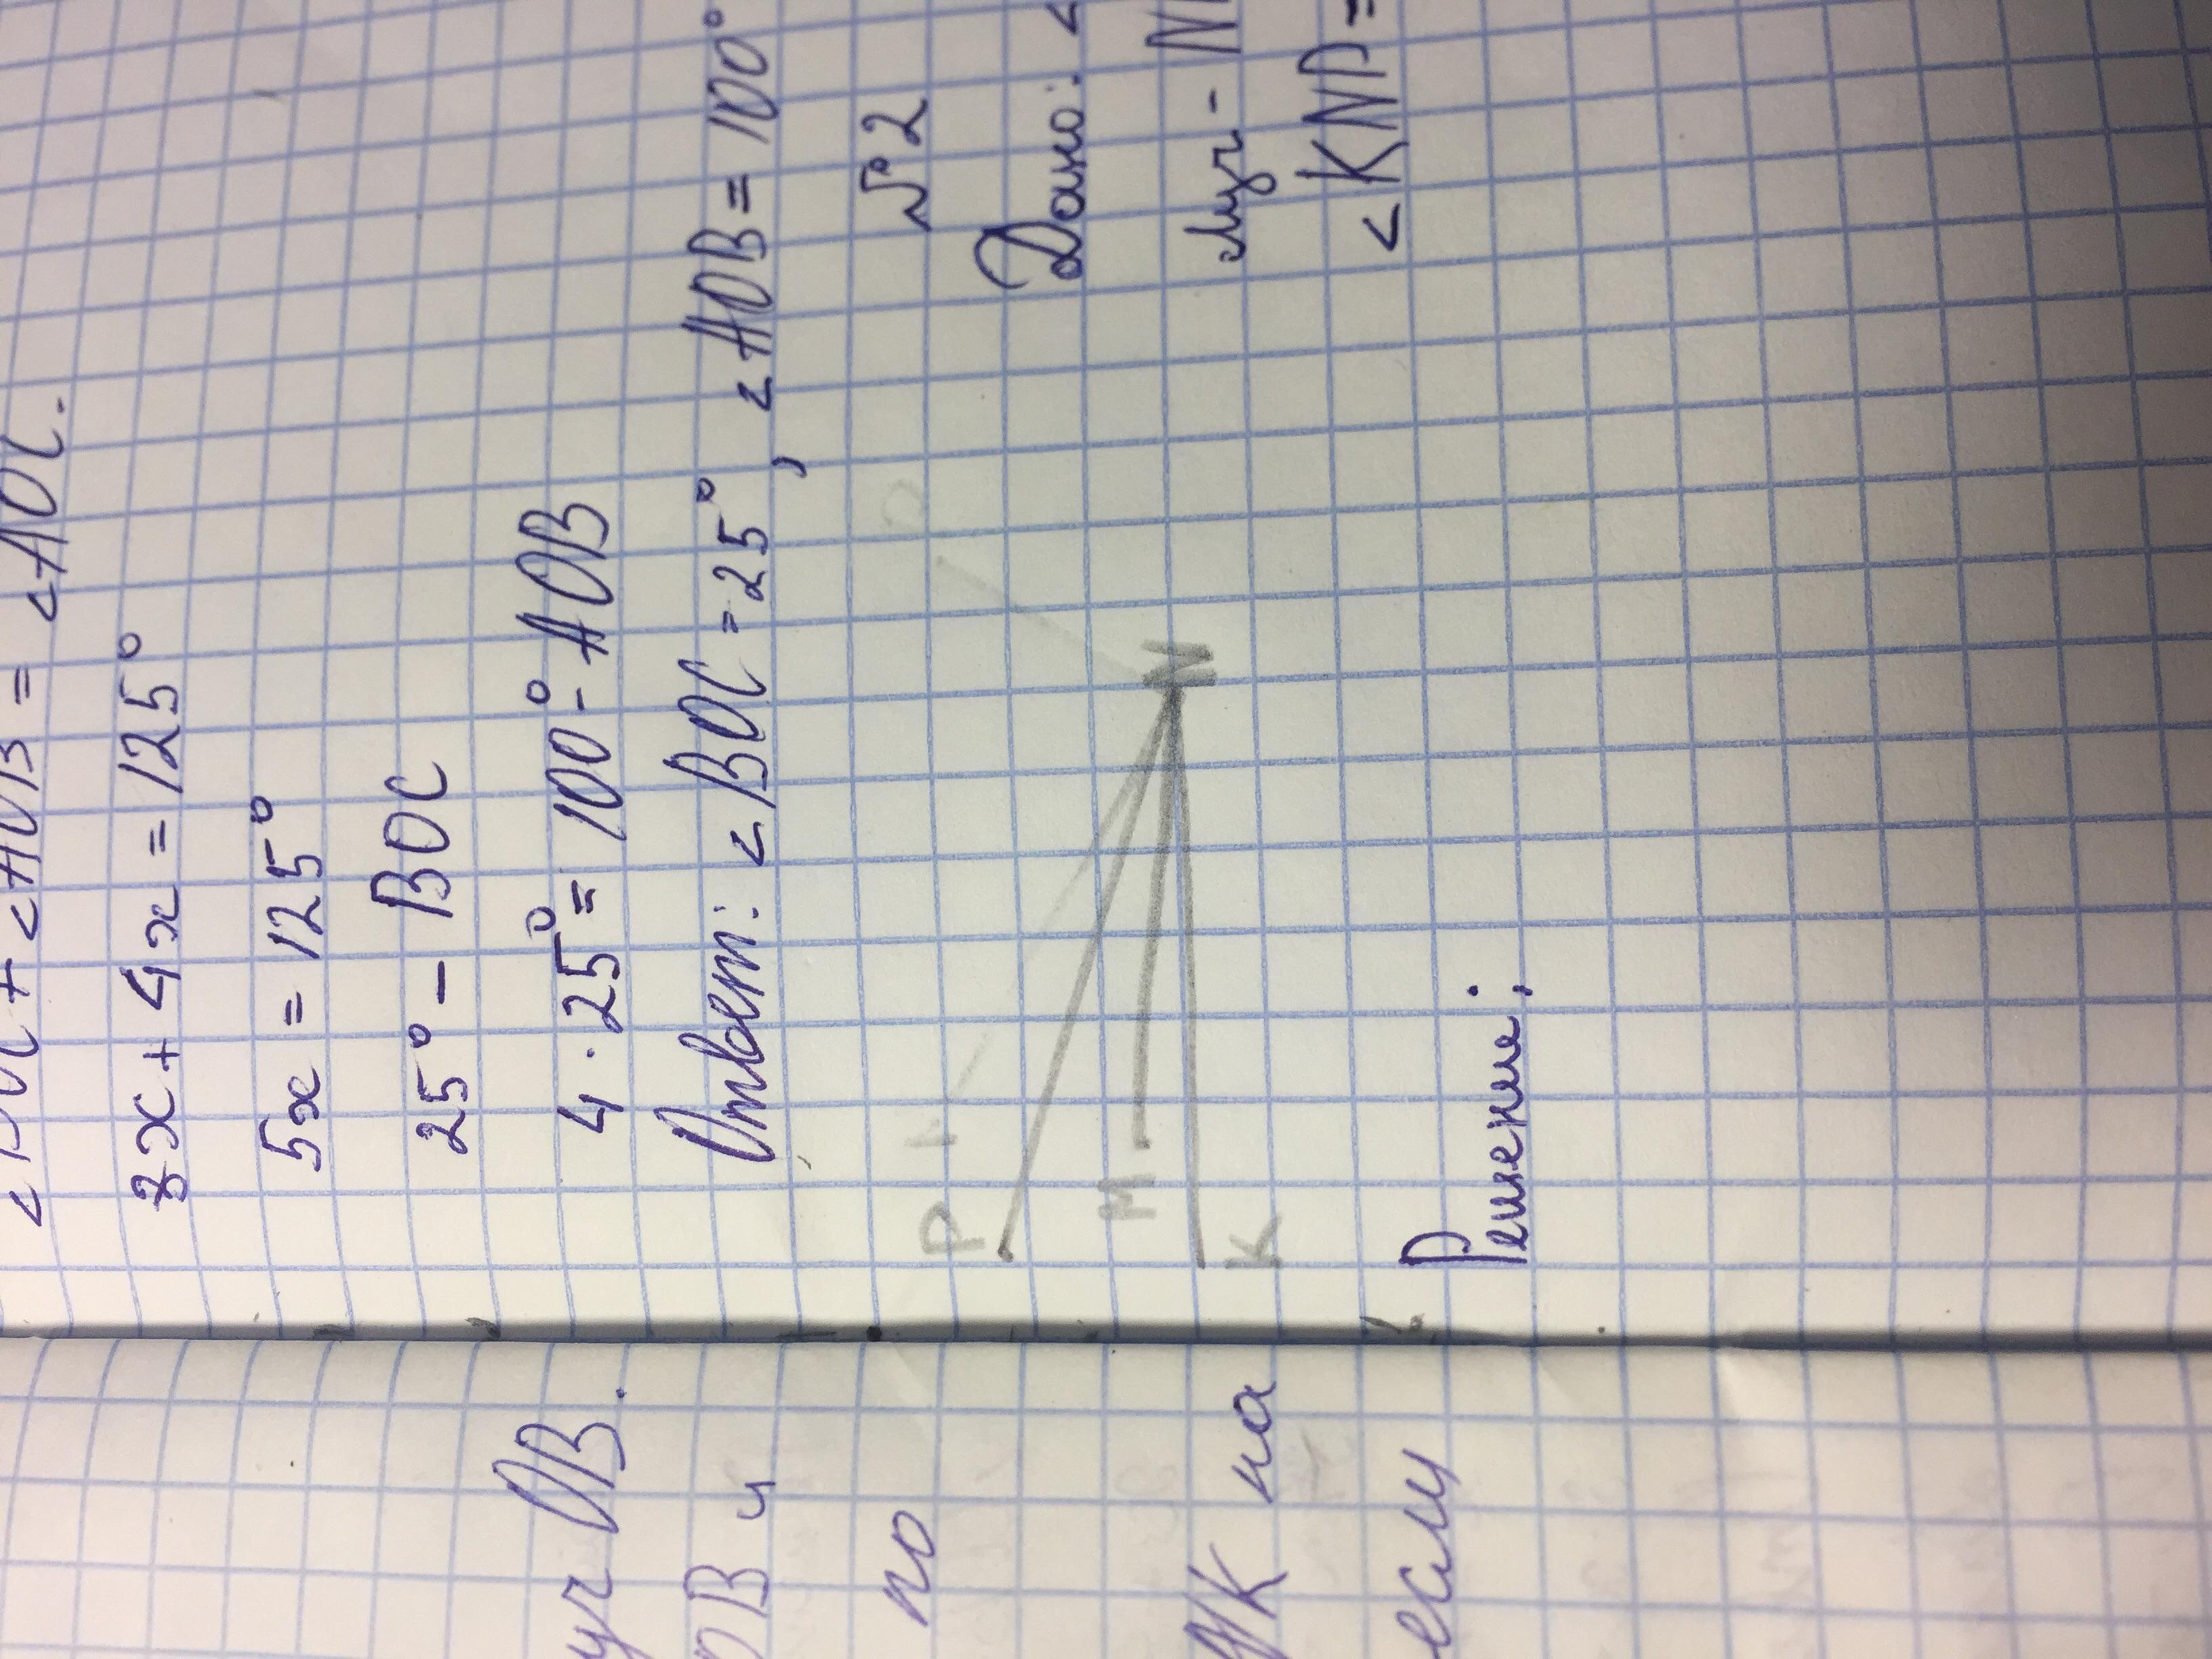 + <AOB = <AOC.
x + 4x = 125°
5x = 125°
25° - BOC
4 · 25° = 100° - AOB
Ответ: <BOC = 25°, <AOB = 100°
№2
Дано: <
Луч - N
<KNP =
P
M
K
N
Решение;
ОВ.
ОВ и
по
на
если